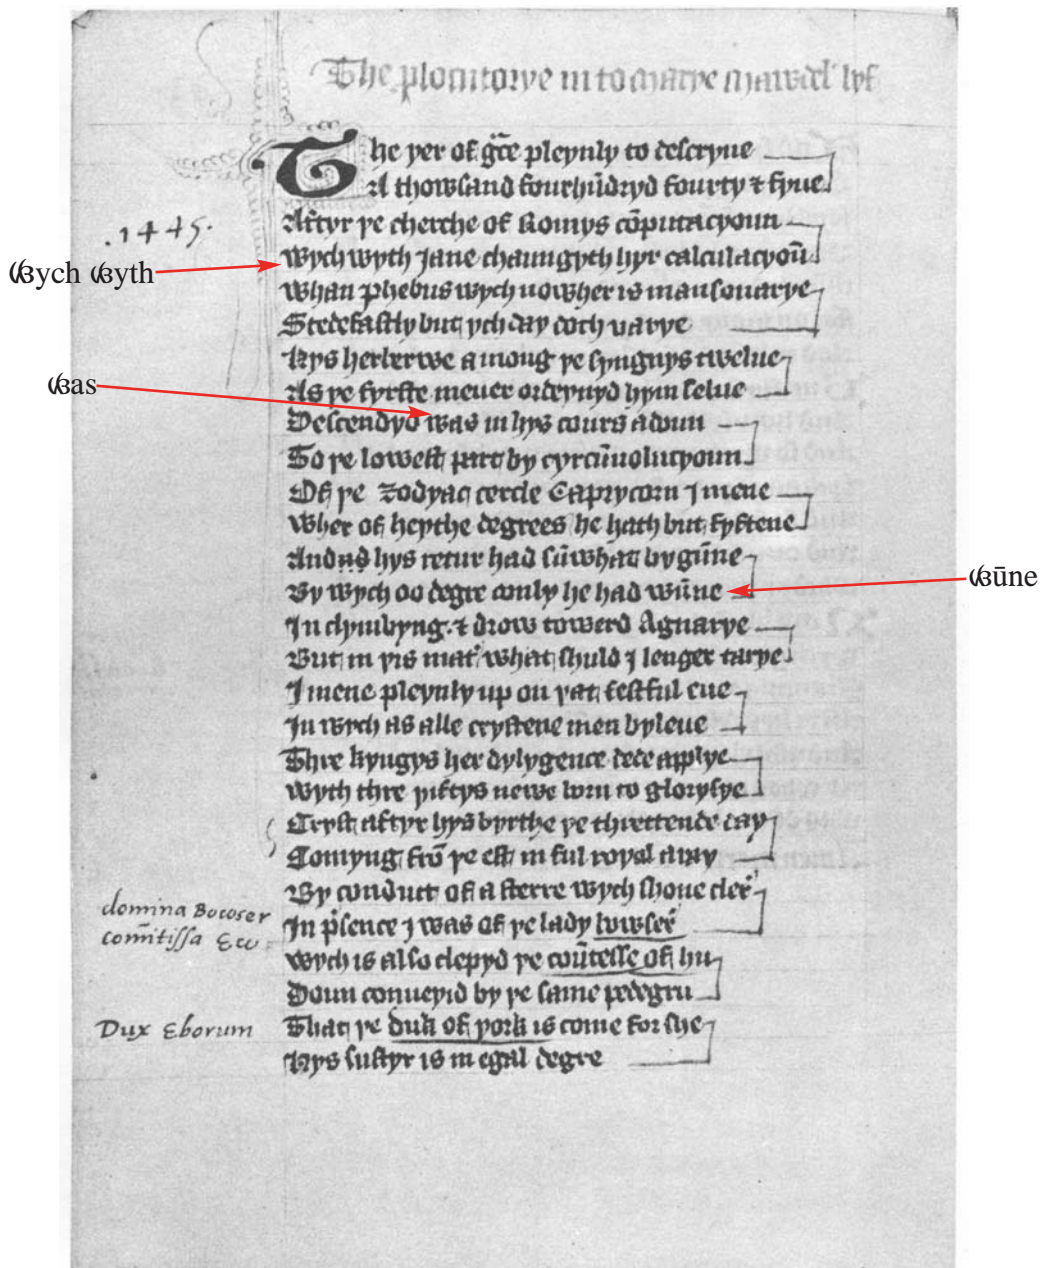 The prolocutorye in to marye mawdel' lyf
The yer of gr̄ce pleynly to descryue
A thowsand fourhūdryd fourty & fyue
Aftyr þe cherche of Romys cōputacyoun
.1445.
Wych wyth Jane chaungyth hyr calculacyoū
ꟃych ꟃyth
Whan phebus wych nowher is mansonarye
Stedefastly but ych day doth varye
Hys herberwe among þe synguys twelue
As þe fyrste meuer ordeynyd hym selue
ꟃas
Descendyd was in hys cours adoun
To þe lowest part by cyrcūuolucyoun
Of þe Zodyac cercle Caprycorn J mene
Wher of heythe degrees he hath but fyftene
And hys retur had sūwhat bygūne
By wych oo degre only he had wūne
ꟃūne
In clymbyng & drow toward Aquarye
But in þis mat' what shuld J lenger tarye
J mene pleynly up on þat festful eue
In wych as alle crystene men byleue
Thre kyngys her dylygence dede applye
Wyth thre yiftys newe born to gloryfye
Cryst aftyr hys byrthe þe threttende day
Comyng frō þe est in ful royal aray
By conduct of a sterre wych shone cler'
domina Bocoser
In p'sence J was of þe lady bowser̄
com̄itissa Ew
Wych is also clepyd þe coūtesse of hu
Doun conueyid by þe same pedegru
Dux Eborum
That þe duk of york is come for she
Hys sustyr is in egal degre